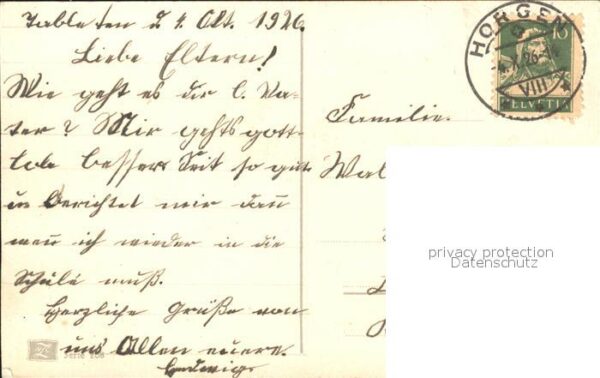 den 4. Okt. 1926.
Liebe Eltern!
Wie geht es dir l. Va-
ter? Mir gehts gott-
lob besser. Seit so gut
u. berichtet mir dan
wen ich wieder in die
Schule muß.
Herzliche Grüße von
uns Allen euere
Hedwig
Serie
Familie
HORGEN
VIII
10
HELVETIA
privacy protection
Datenschutz